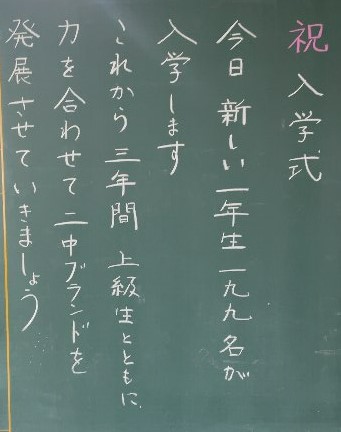 祝 入学式
今日 新しい一年生一九九名が
入学します
これから 三年間 上級生とともに、
力を合わせて 二中ブランドを
発展させていきましょう